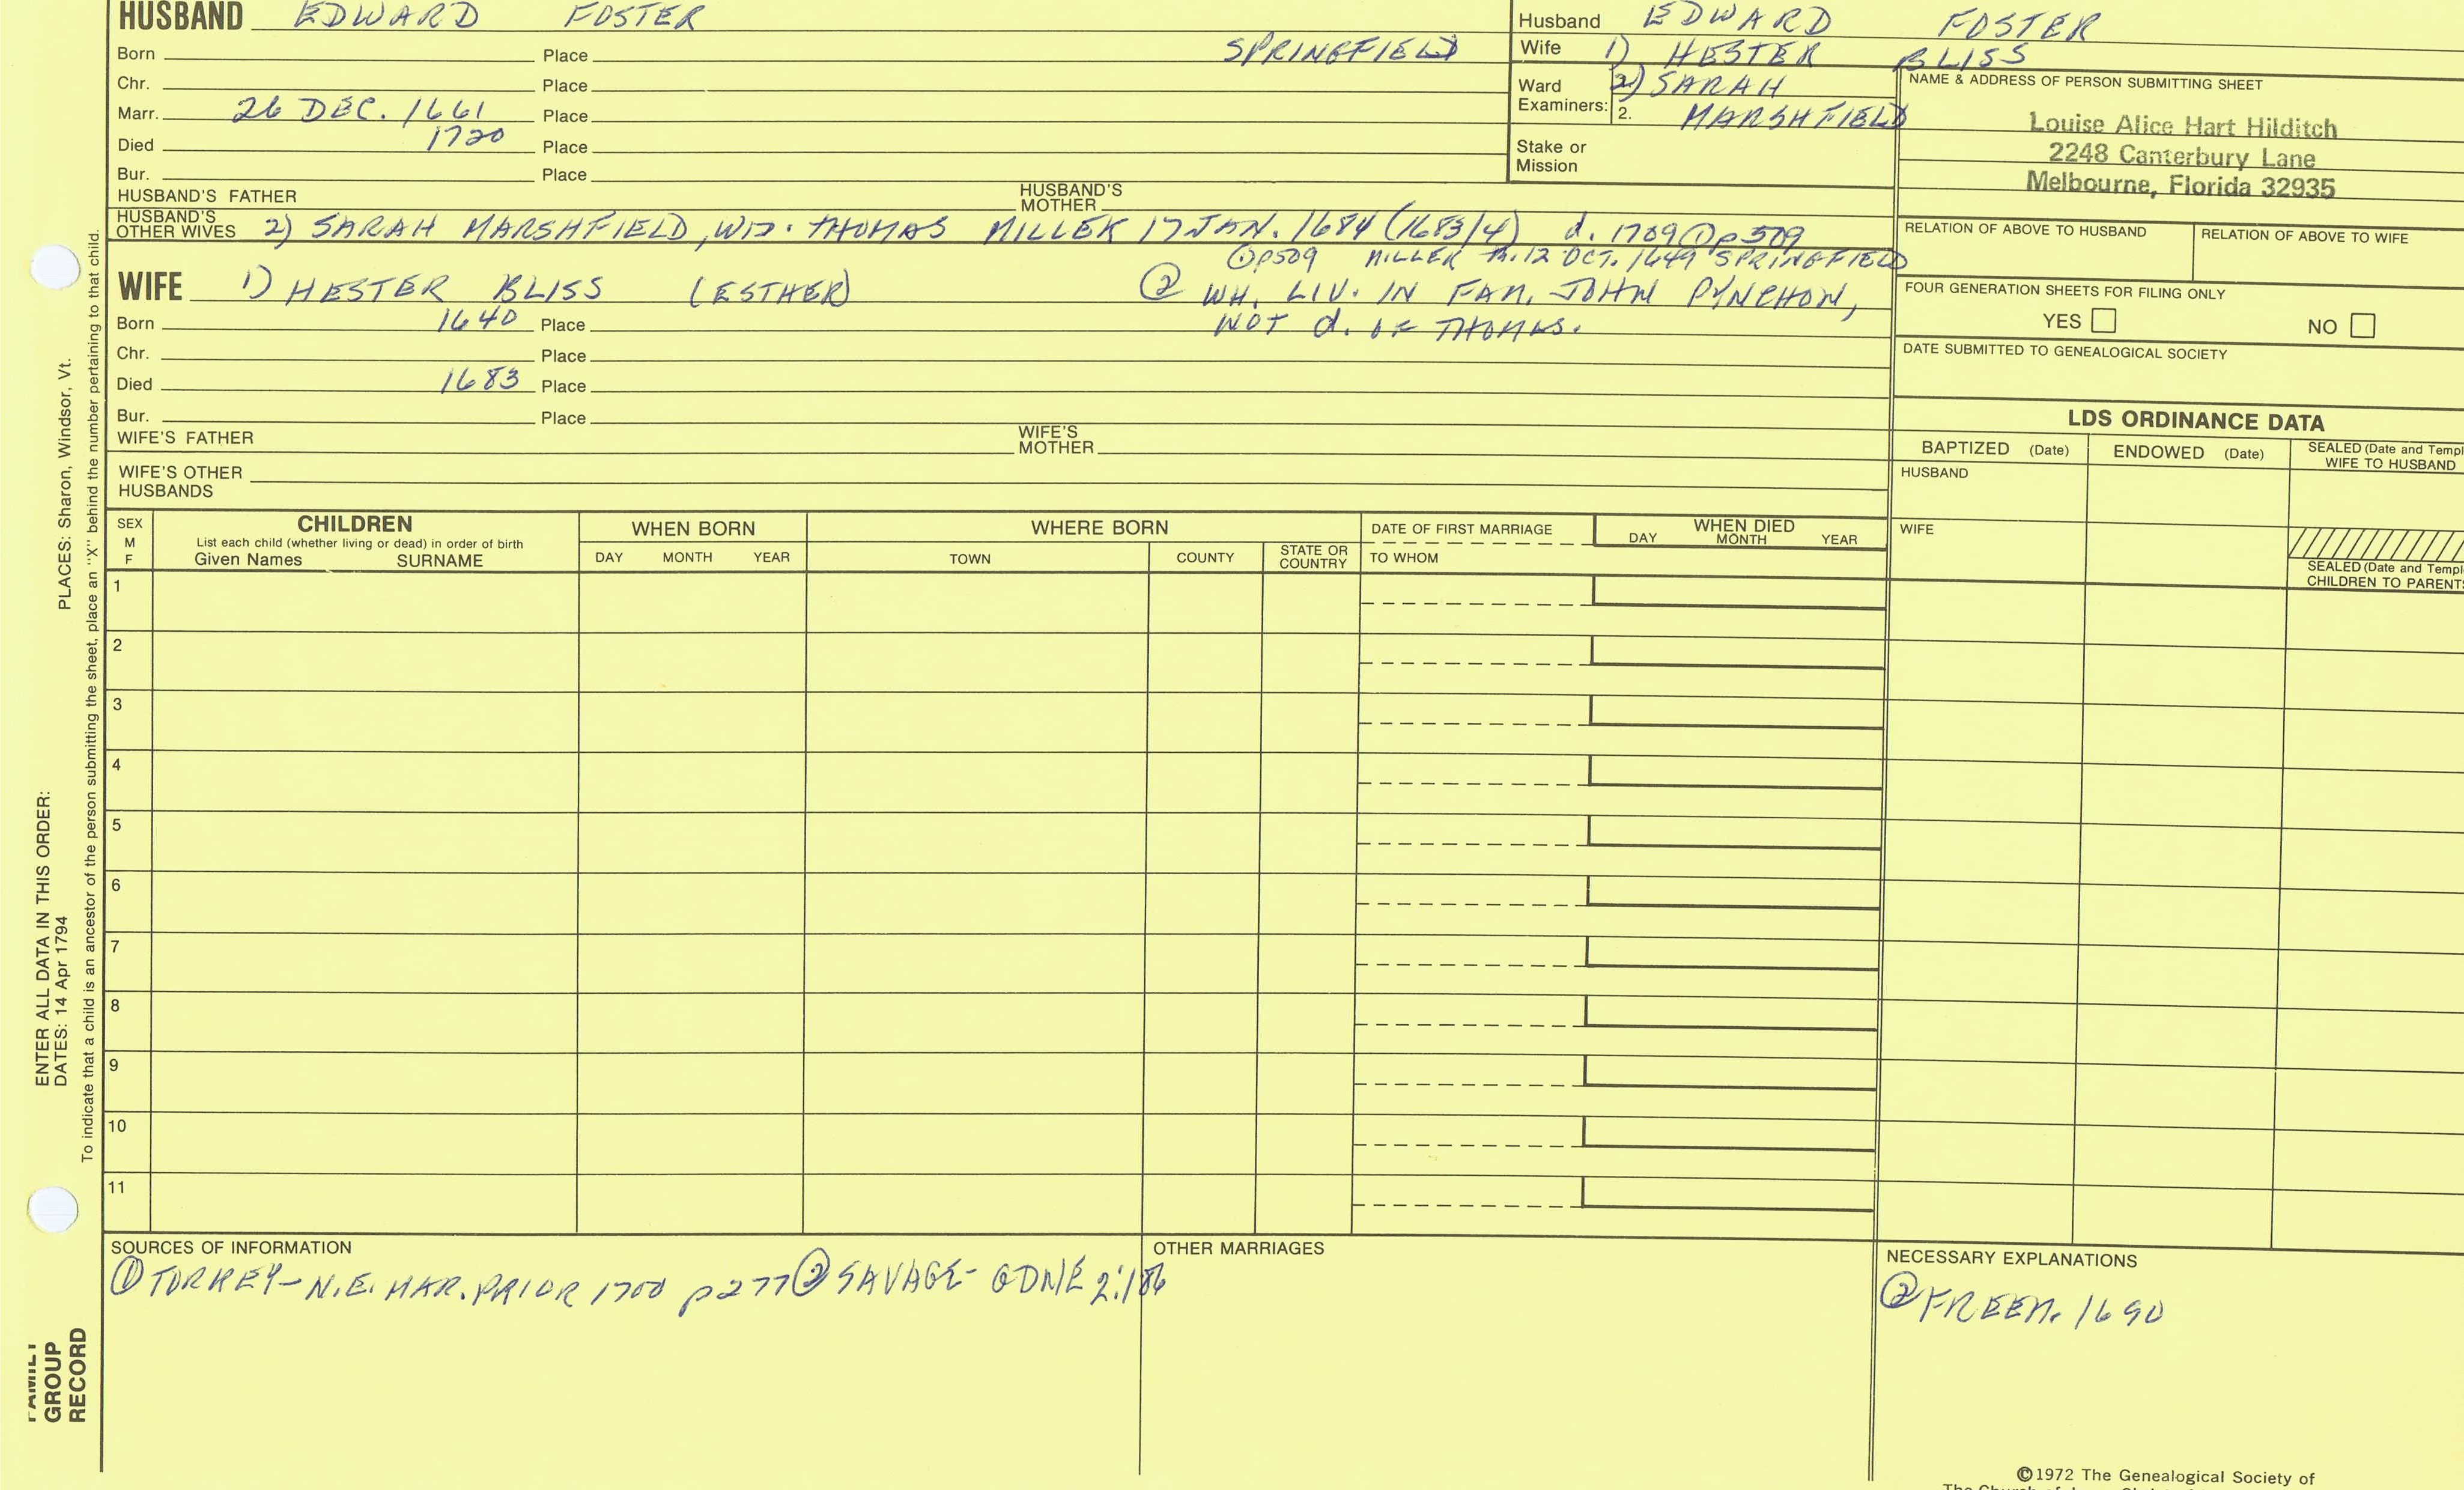 HUSBAND EDWARD FOSTER
Born Place SPRINGFIELD
Chr. Place
Marr. 26 DEC. 1661 Place
Died 1720 Place
Bur. Place
HUSBAND'S FATHER HUSBAND'S MOTHER
HUSBAND'S OTHER WIVES 2) SARAH MARSHFIELD, WID. THOMAS MILLER 17 JAN. 1684 (1683/4) d. 1709 ① p509
① p509 MILLER m. 12 OCT. 1649 SPRINGFIELD
WIFE 1) HESTER BLISS (ESTHER) ② WH. LIV. IN FAM. JOHN PYNCHON,
Born 1640 Place NOT d. OF THOMAS.
Chr. Place
Died 1683 Place
Bur. Place
WIFE'S FATHER WIFE'S MOTHER
WIFE'S OTHER HUSBANDS
Husband EDWARD FOSTER
Wife 1) HESTER BLISS
Ward Examiners: 2) SARAH
2. MARSHFIELD
Stake or Mission
NAME & ADDRESS OF PERSON SUBMITTING SHEET
Louise Alice Hart Hilditch
2248 Canterbury Lane
Melbourne, Florida 32935
RELATION OF ABOVE TO HUSBAND RELATION OF ABOVE TO WIFE
FOUR GENERATION SHEETS FOR FILING ONLY
YES NO
DATE SUBMITTED TO GENEALOGICAL SOCIETY
LDS ORDINANCE DATA
BAPTIZED (Date) ENDOWED (Date) SEALED (Date and Templ
WIFE TO HUSBAND
HUSBAND
WIFE
SEALED (Date and Templ
CHILDREN TO PARENTS
SEX M F CHILDREN WHEN BORN WHERE BORN DATE OF FIRST MARRIAGE WHEN DIED
List each child (whether living or dead) in order of birth
Given Names SURNAME DAY MONTH YEAR TOWN COUNTY STATE OR COUNTRY TO WHOM DAY MONTH YEAR
1
2
3
4
5
6
7
8
9
10
11
SOURCES OF INFORMATION
① TORREY- N.E. MAR. PRIOR 1700 p277 ② SAVAGE- GDNE 2:186
OTHER MARRIAGES
NECESSARY EXPLANATIONS
② FREEM. 1690
PLACES: Sharon, Windsor, Vt.
ENTER ALL DATA IN THIS ORDER:
DATES: 14 Apr 1794
To indicate that a child is an ancestor of the person submitting the sheet, place an "X" behind the number pertaining to that child.
FAMILY
GROUP
RECORD
©1972 The Genealogical Society of